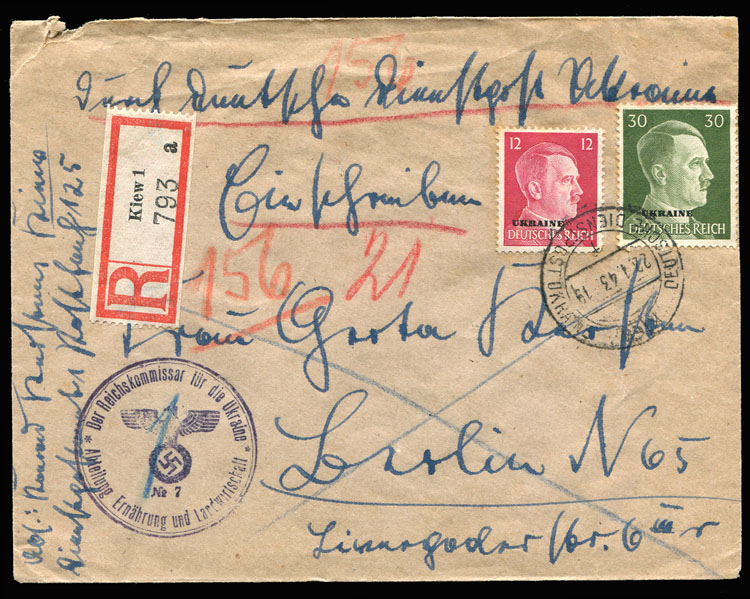 156
durch deutsche Dienstpost Ukraine
R
Kiew 1
793 a
12 12
UKRAINE
DEUTSCHES REICH
30 30
UKRAINE
DEUTSCHES REICH
Einschreiben
DEUTSCHE DIENSTPOST UKRAINE
22.1.43-19
156 21
Frau Greta
Berlin N 65
str. 6 III r
* Der Reichskommissar für die Ukraine *
Abteilung Ernährung und Landwirtschaft
№ 7
Abs.: Konrad
125